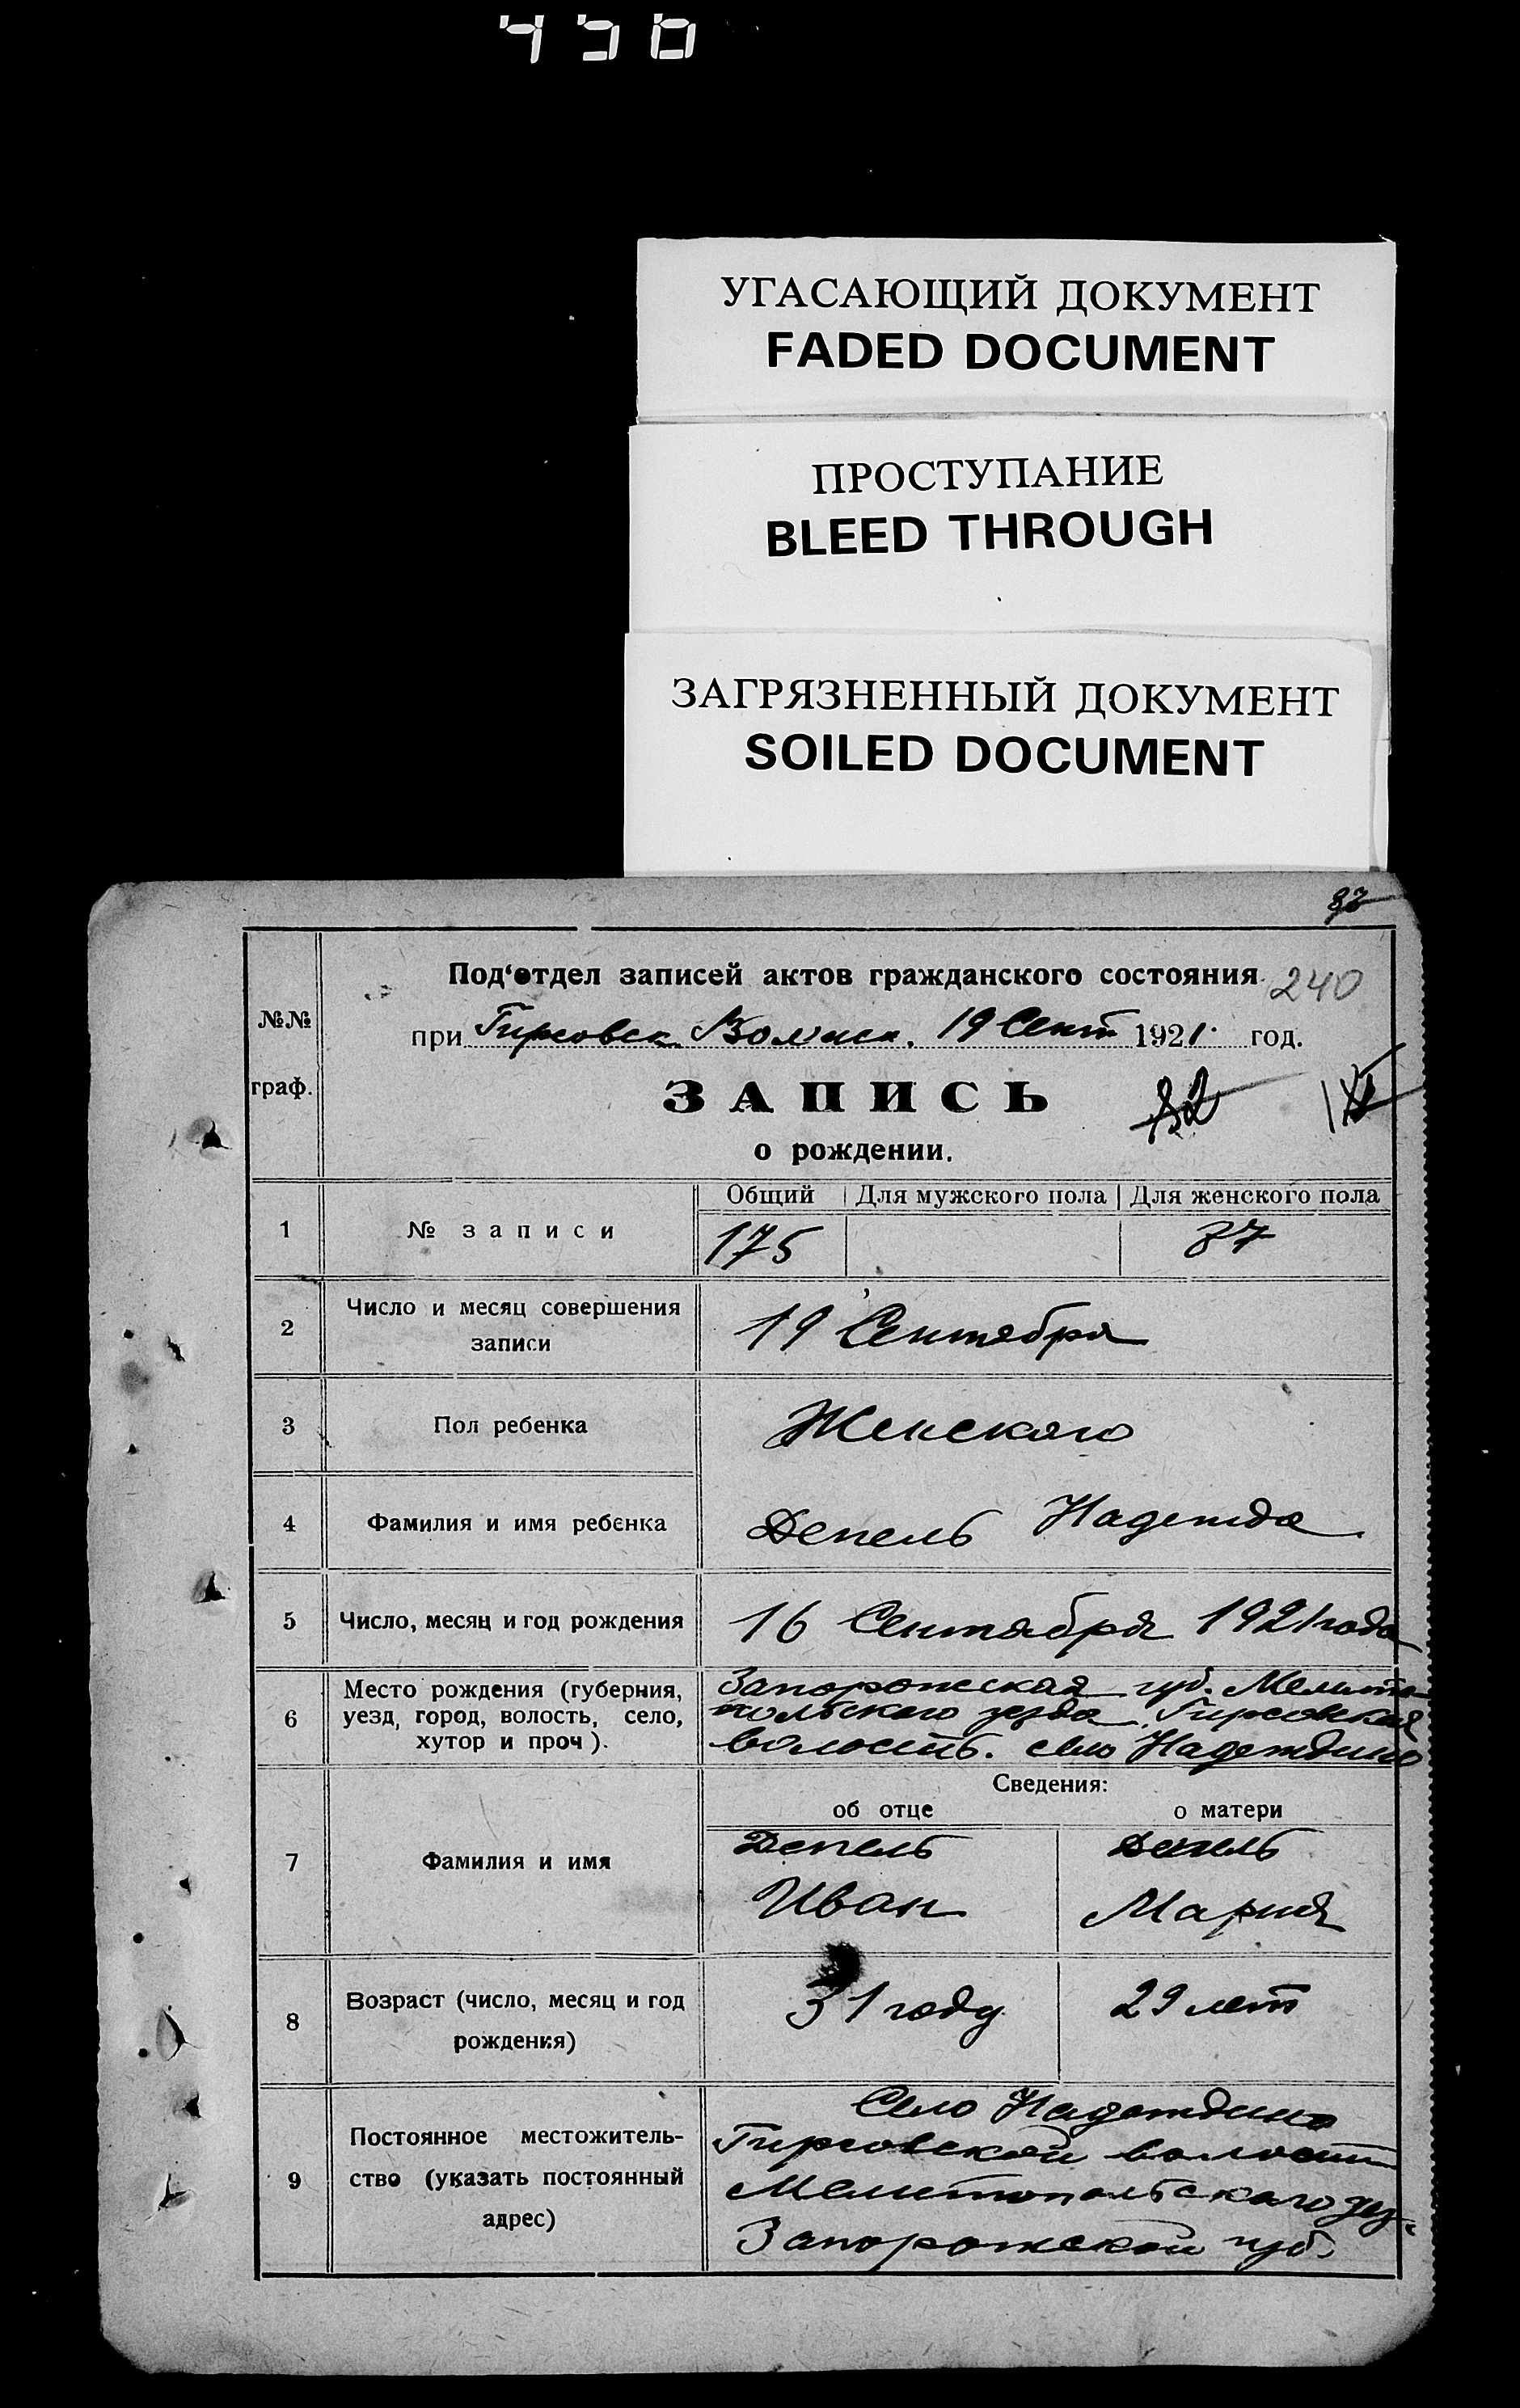 450
УГАСАЮЩИЙ ДОКУМЕНТ
FADED DOCUMENT
ПРОСТУПАНИЕ
BLEED THROUGH
ЗАГРЯЗНЕННЫЙ ДОКУМЕНТ
SOILED DOCUMENT
Под‘отдел записей актов гражданского состояния 240
№№ граф.
при Гирсовск. Волисп. 19 Сент 1921 год.
ЗАПИСЬ
о рождении.
82
Общий Для мужского пола Для женского пола
1 № записи 175 87
2 Число и месяц совершения
записи
19 Сентября
3 Пол ребенка Женского
4 Фамилия и имя ребенка Депель Надежда
5 Число, месяц и год рождения 16 Сентября 1921 года
6 Место рождения (губерния,
уезд, город, волость, село,
хутор и проч).
Запорожская губ. Мелито
польского уезда Гирсовская
волость. село Надеждино
Сведения:
об отце о матери
7 Фамилия и имя
Депель Депель
Иван Мария
8 Возраст (число, месяц и год
рождения)
31 году 29 лет
9 Постоянное местожитель-
ство (указать постоянный
адрес)
Село Надеждино
Гирсовской волости
Мелитопольского уез.
Запорожской губ.